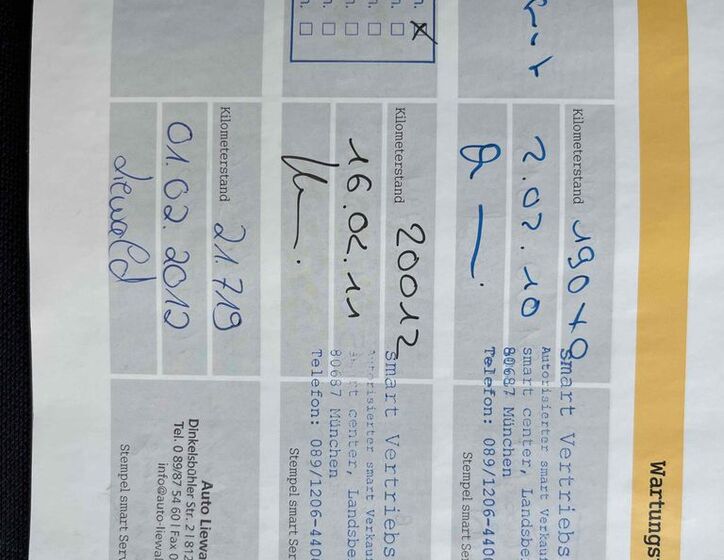 Wartungs
Kilometerstand 19079
2.02.10
smart Vertriebs
Autorisierter smart Verkau
smart center, Landsbe
80687 München
Telefon: 089/1206-440
Stempel smart Ser
Kilometerstand 20012
16.02.11
smart Vertriebs
Autorisierter smart Verkau
smart center, Landsbe
80687 München
Telefon: 089/1206-440
Stempel smart Ser
Kilometerstand 21.719
01.02.2012
Liewald
Auto Liewa
Dinkelsbühler Str. 2 | 812
Tel. 0 89/87 54 60 | Fax 0
info@auto-liewal
Stempel smart Ser